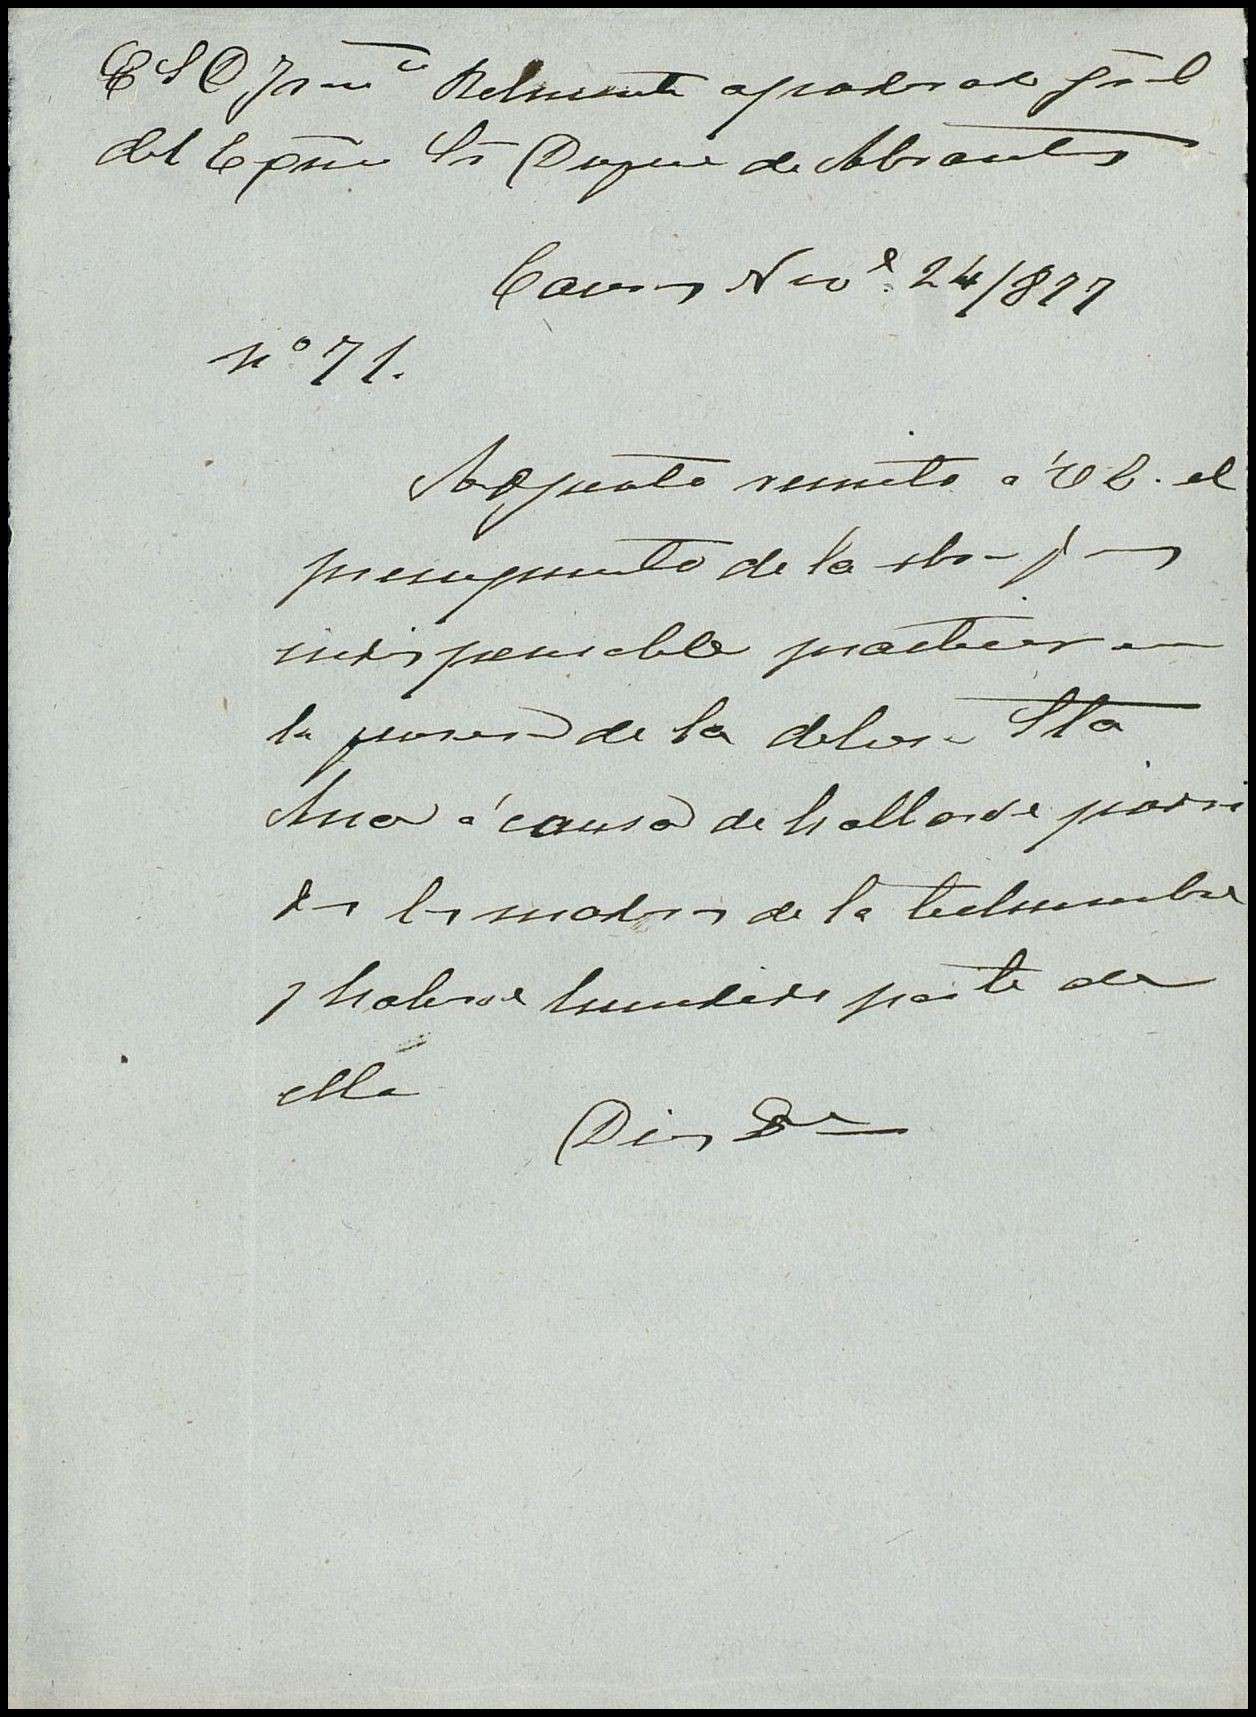 E S D Fran.co Belmonte apoderado gral
del Excmo Sr Duque de Abrantes
Caceres Nove. 24/877
nº 71.
Adjunto remito á V E. el
presupuesto de la obra q es
indispensable practicar en
la posesa de la dehesa Sta
Ana á causa de hallarse podri
das las maderas de la techumbre
y haberse hundido parte de
ella
Dios &a